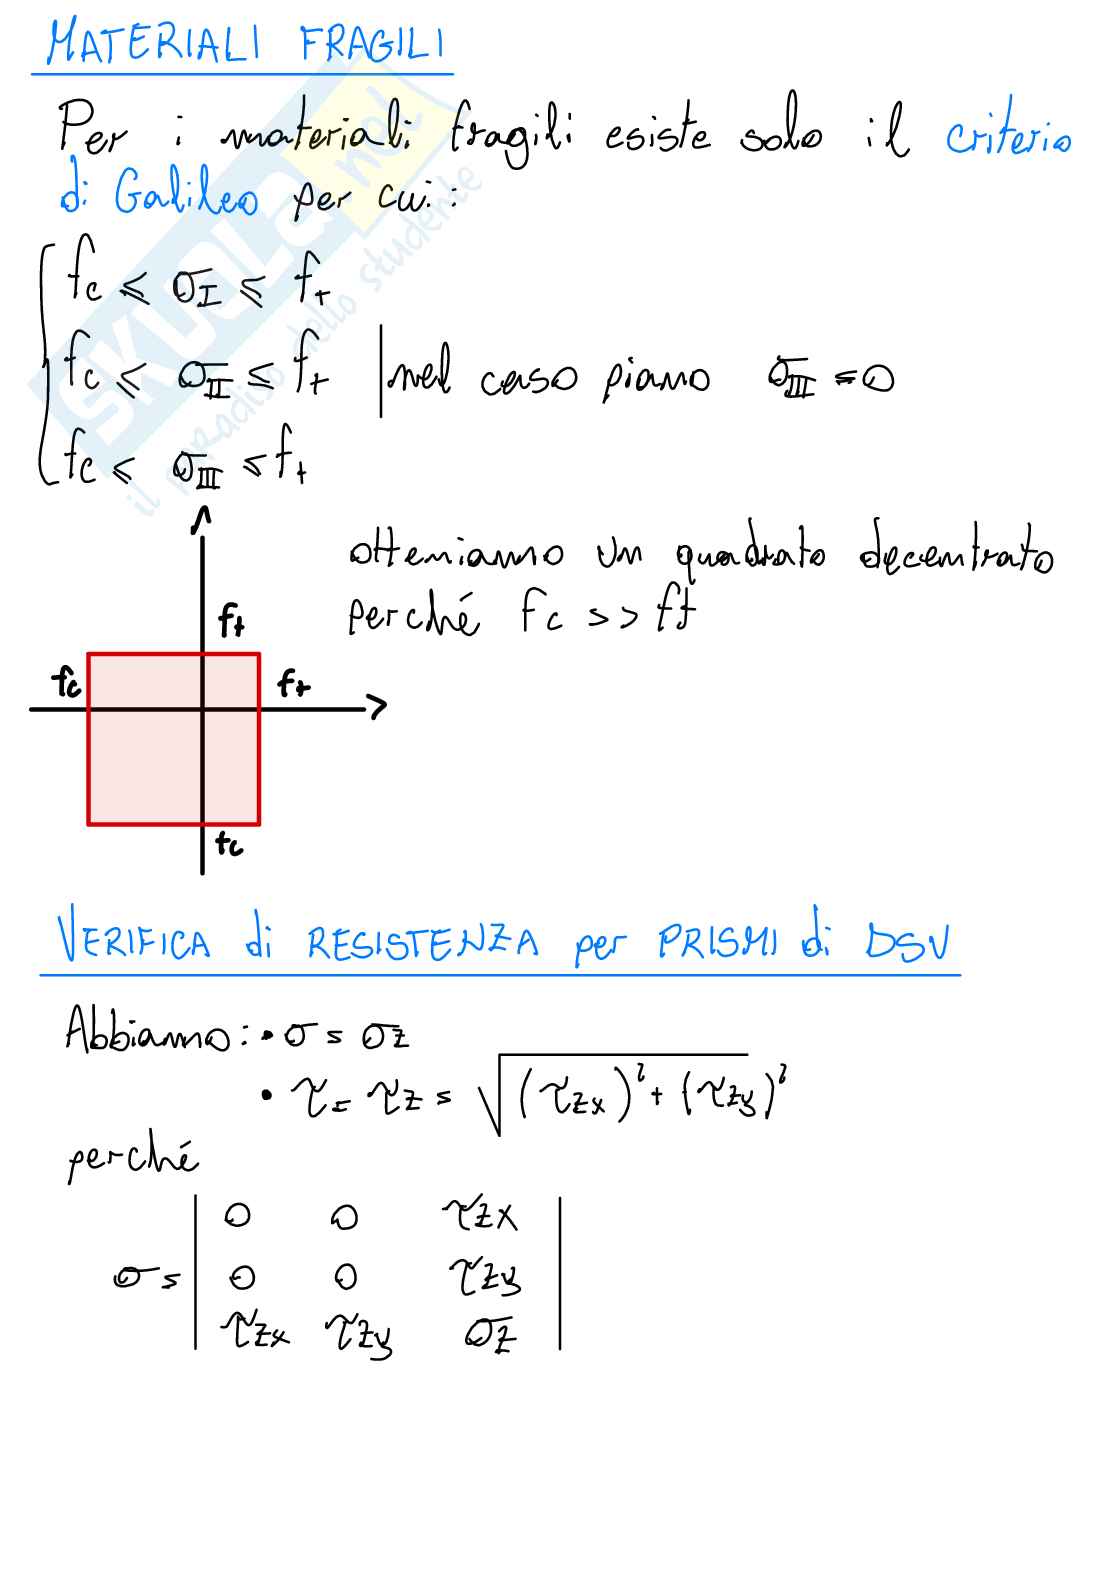 MATERIALI FRAGILI
Per i materiali fragili esiste solo il criterio
di Galileo per cui:
fc ⩽ σI ⩽ ft
fc ⩽ σII ⩽ ft | nel caso piano σIII = 0
fc ⩽ σIII ⩽ ft
otteniamo un quadrato decentrato
perché fc >> ft
ft
fc
ft
fc
VERIFICA di RESISTENZA per PRISMI di DSV
Abbiamo: • σ = σz
• τ = τz = √(τzx)² + (τzy)²
perché
σ = | 0 0 τzx |
0 0 τzy
τzx τzy σz
SKUOLA.net
il paradiso dello studente